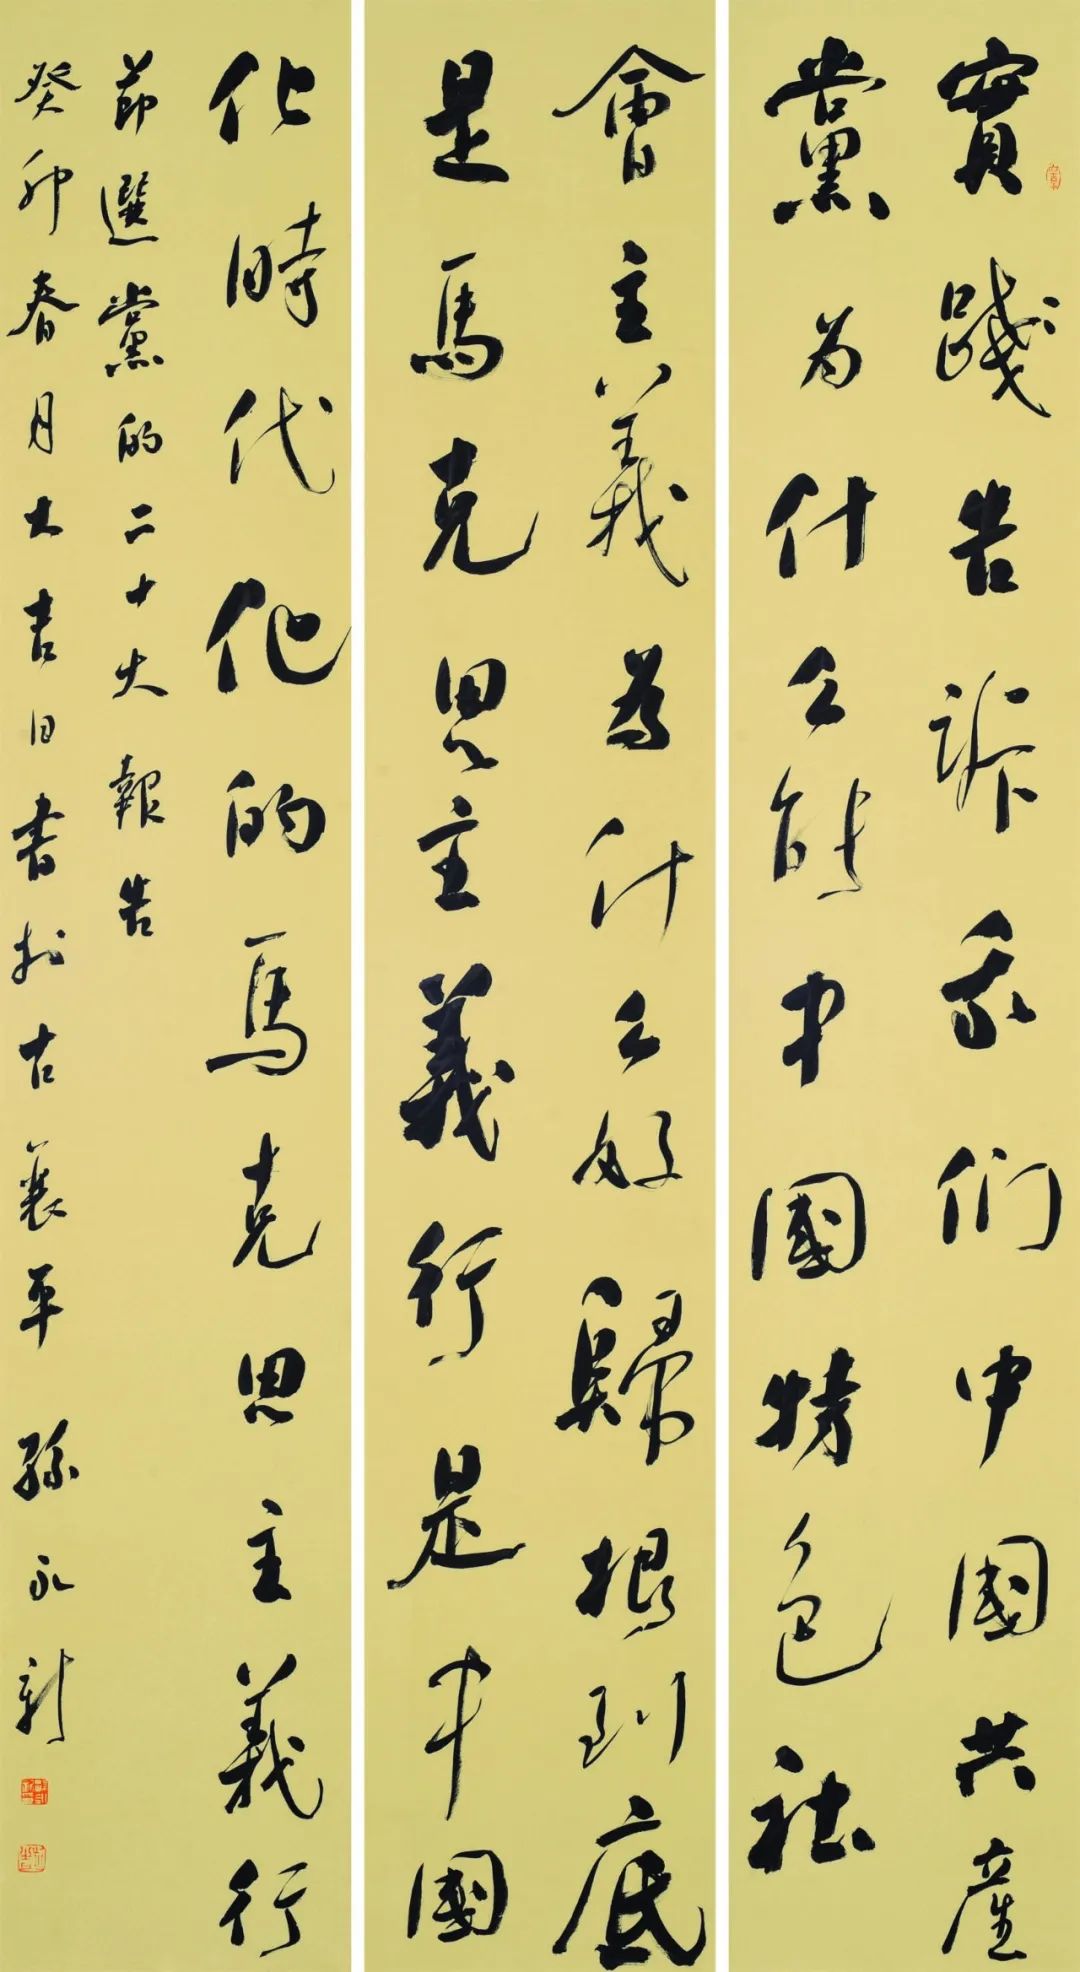 實踐告訴我們中國共產
黨为什么能中國特色社
會主義為什么好歸根到底
是馬克思主義行是中國
化時代化的馬克思主義行
節選黨的二十大報告
癸卯春月大吉日書於古襄平 孫永新